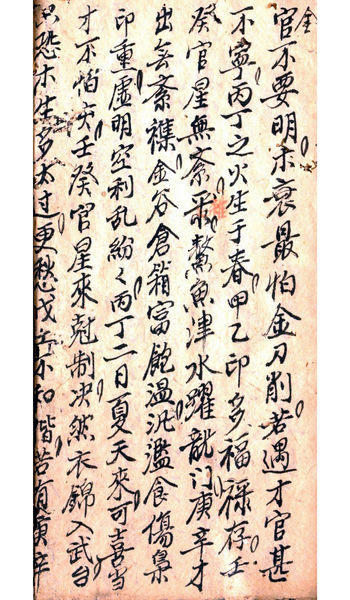 金
官不要明木衰最怕金刀削若遇才官甚
不寧丙丁之火生于春甲乙印多福祿存壬
癸官星無紊鰲魚津水躍龍门庚辛才
出無紊襍金谷倉箱富飽温汎濫食傷梟
印重虛明空利乱紛々丙丁二日夏天來可喜當
才不怕灾壬癸官星來尅制决然衣錦入武台
恐木生多太过更愁戊己不和谐若有庚辛